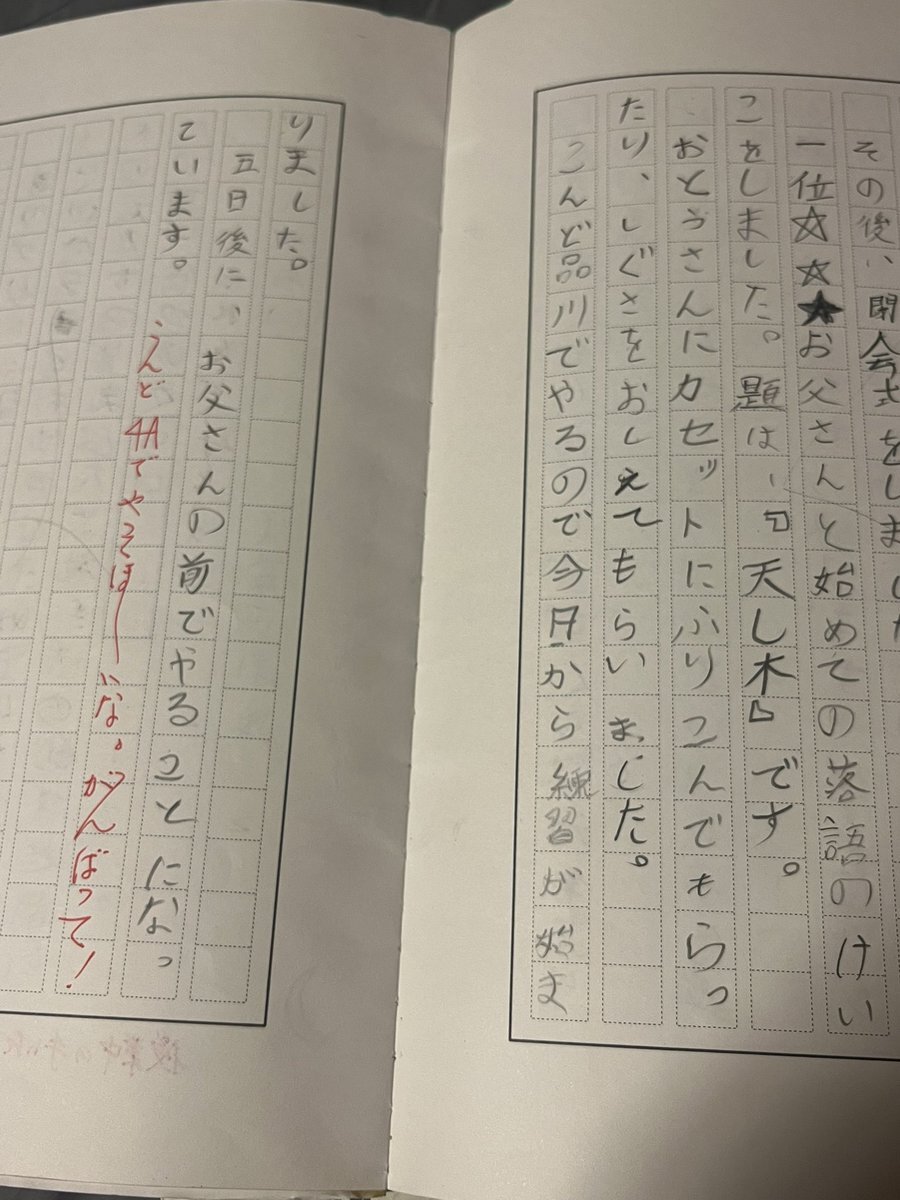 その後、閉会式をしました
一位☆☆★お父さんと始めての落語のけい
こをしました。題は、『天し木』です。
おとうさんにカセットにふりこんでもらっ
たり、しぐさをおしえてもらいました。
こんど品川でやるので今日から練習が始ま
りました。
五日後に、お父さんの前でやることになっ
ています。
こんど4Aで
がんばって!